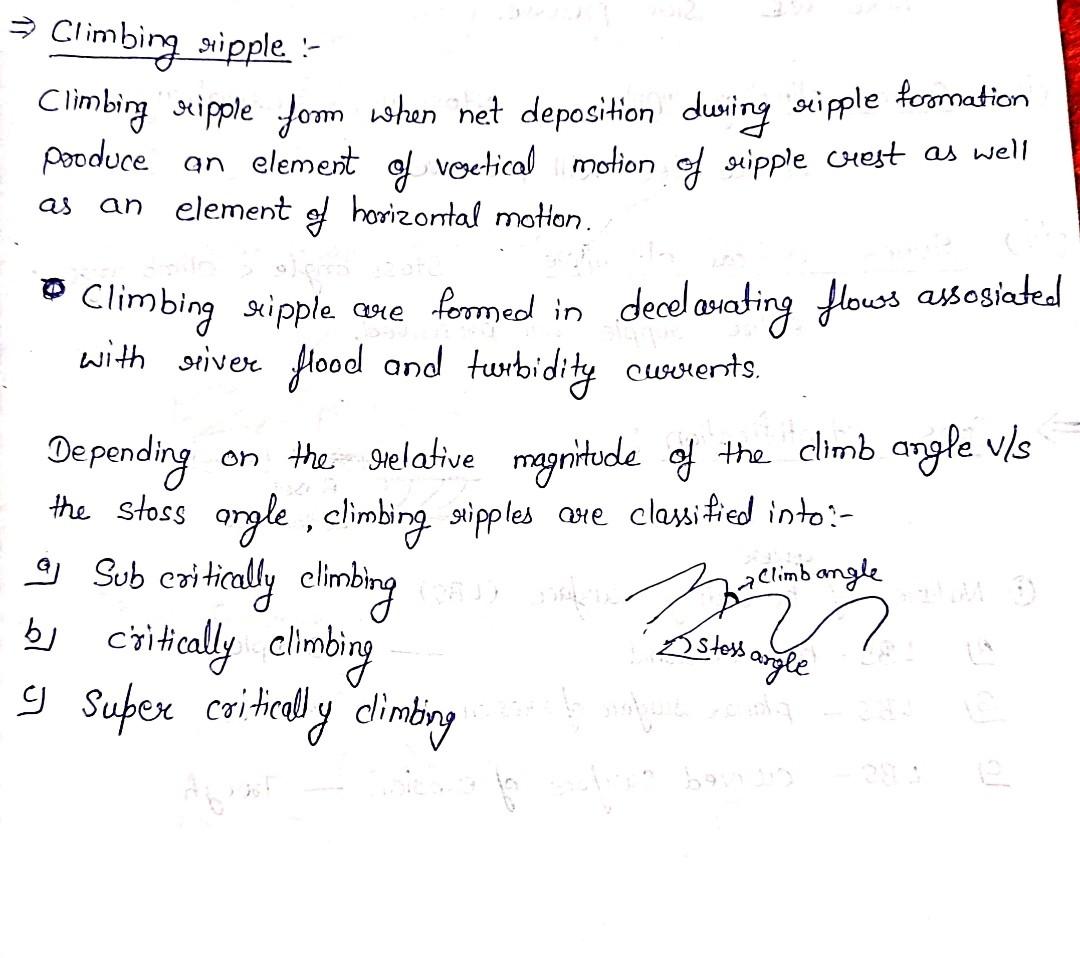 ⇒ Climbing ripple :-
Climbing ripple form when net deposition during ripple formation
produce an element of vertical motion of ripple crest as well
as an element of horizontal motion.
Climbing ripple are formed in decelarating flows assosiated
with river flood and turbidity currents.
Depending on the relative magnitude of the climb angle v/s
the stoss angle, climbing ripples are classified into:-
a) Sub critically climbing
→ climb angle
b) critically climbing
stoss angle
c) Super critically climbing